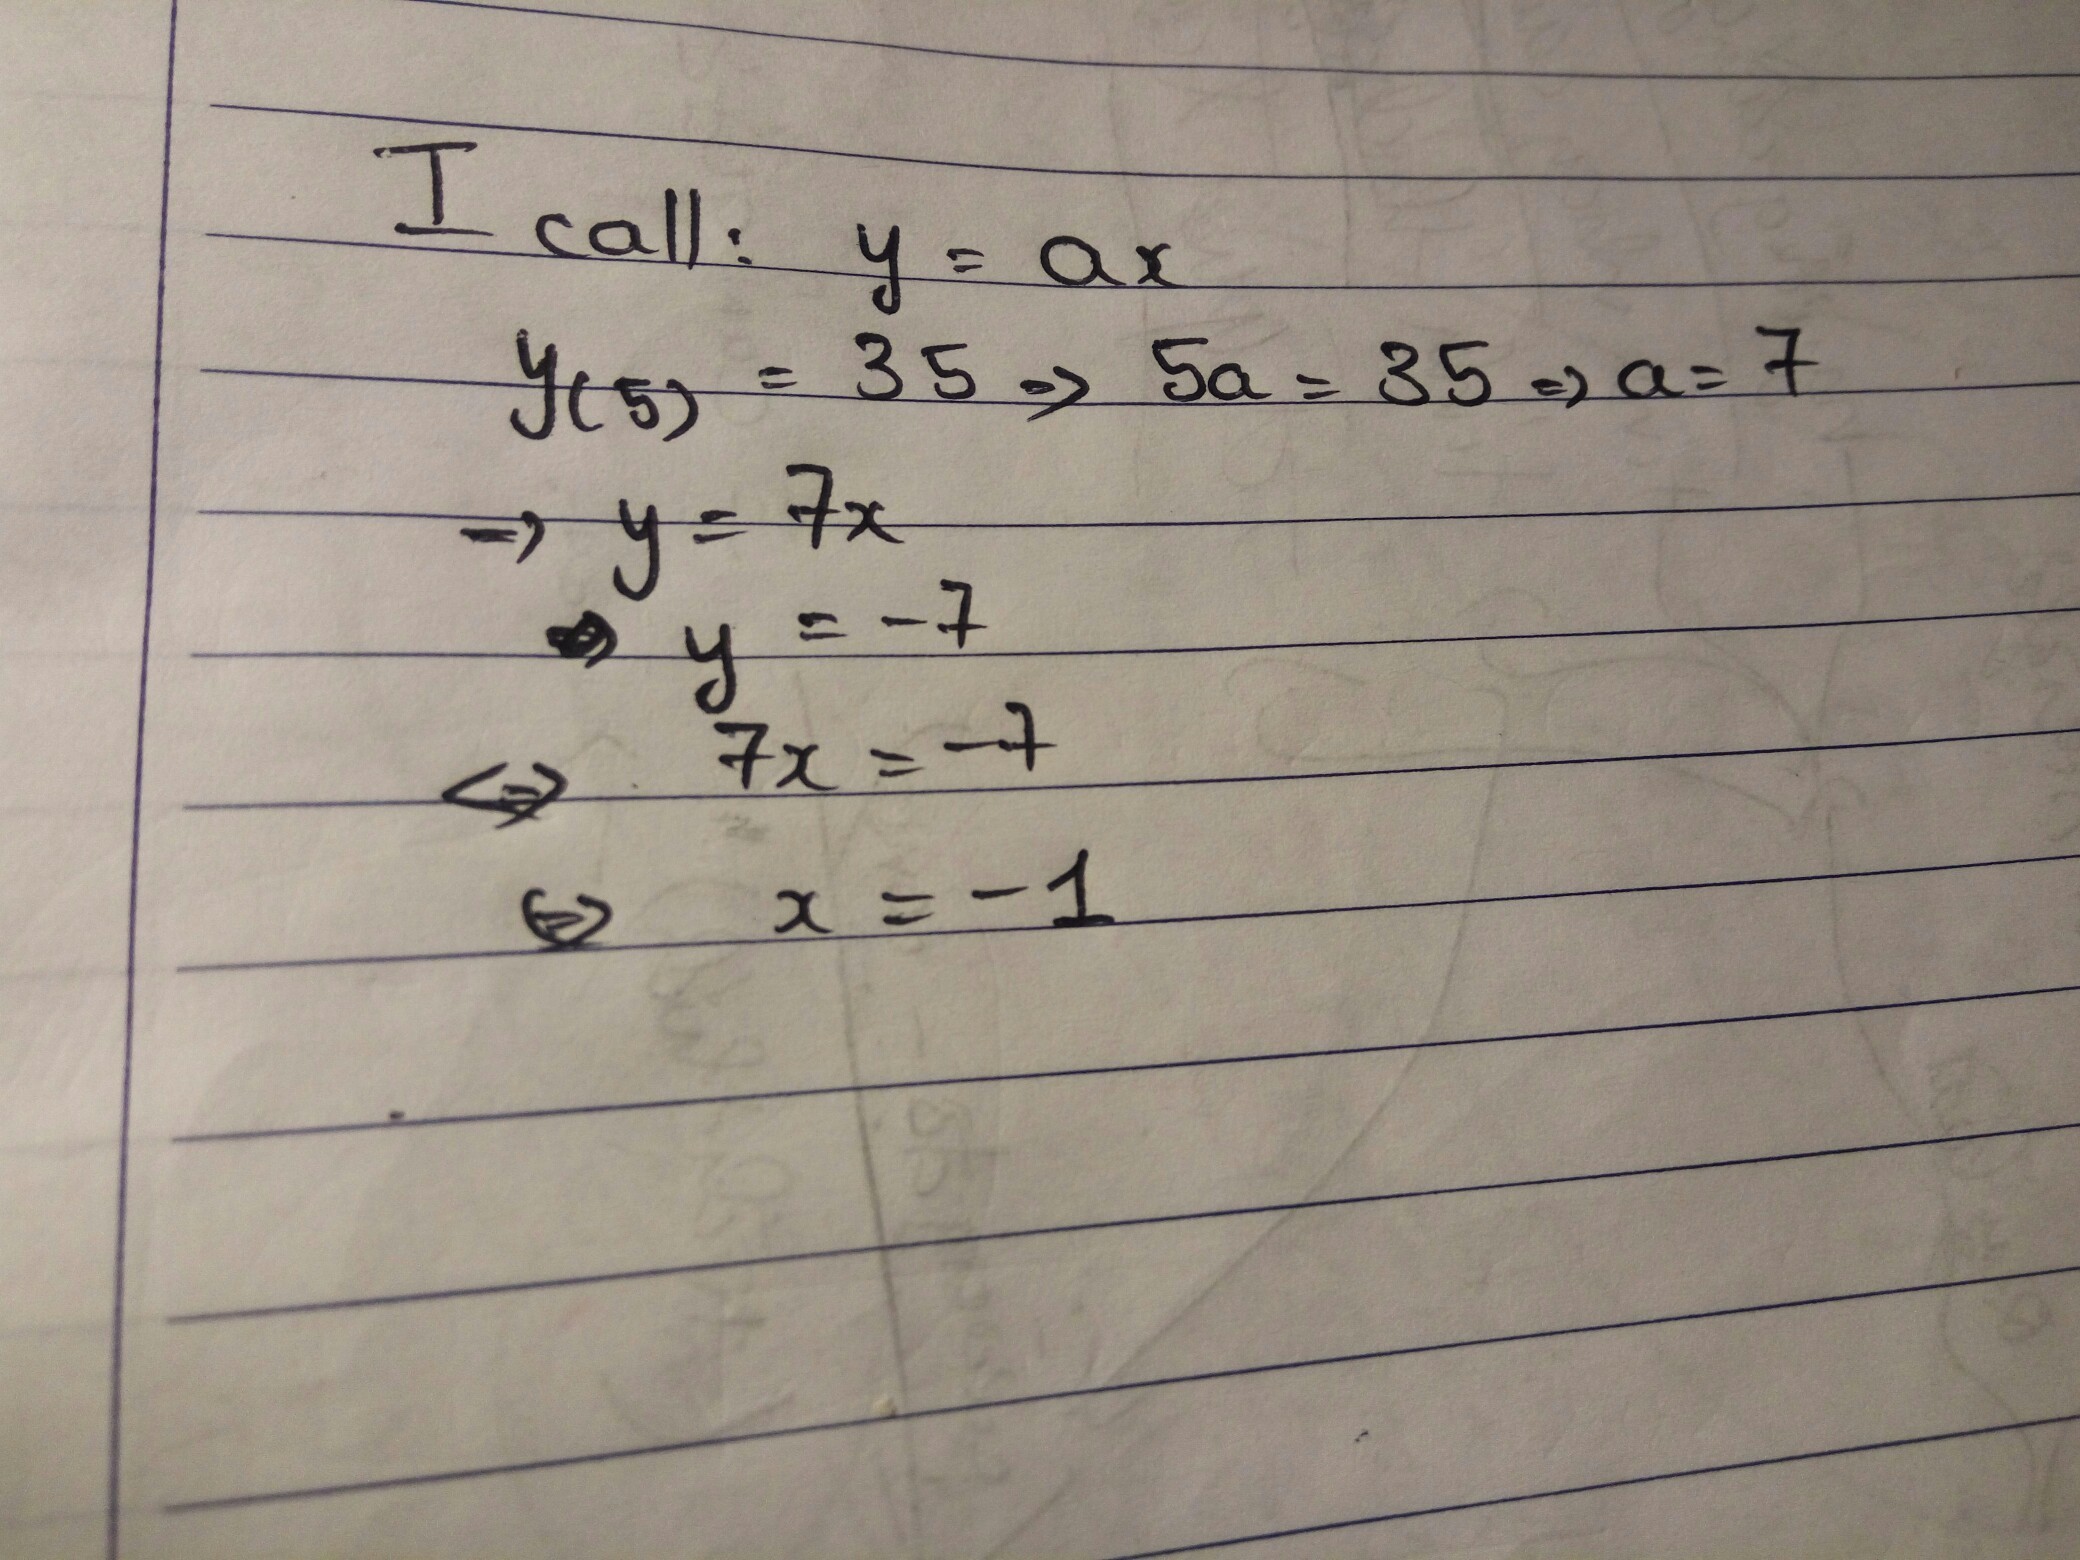 I call: y = ax
y(5) = 35 => 5a = 35 => a = 7
=> y = 7x
=> y = -7
<=> 7x = -7
<=> x = -1